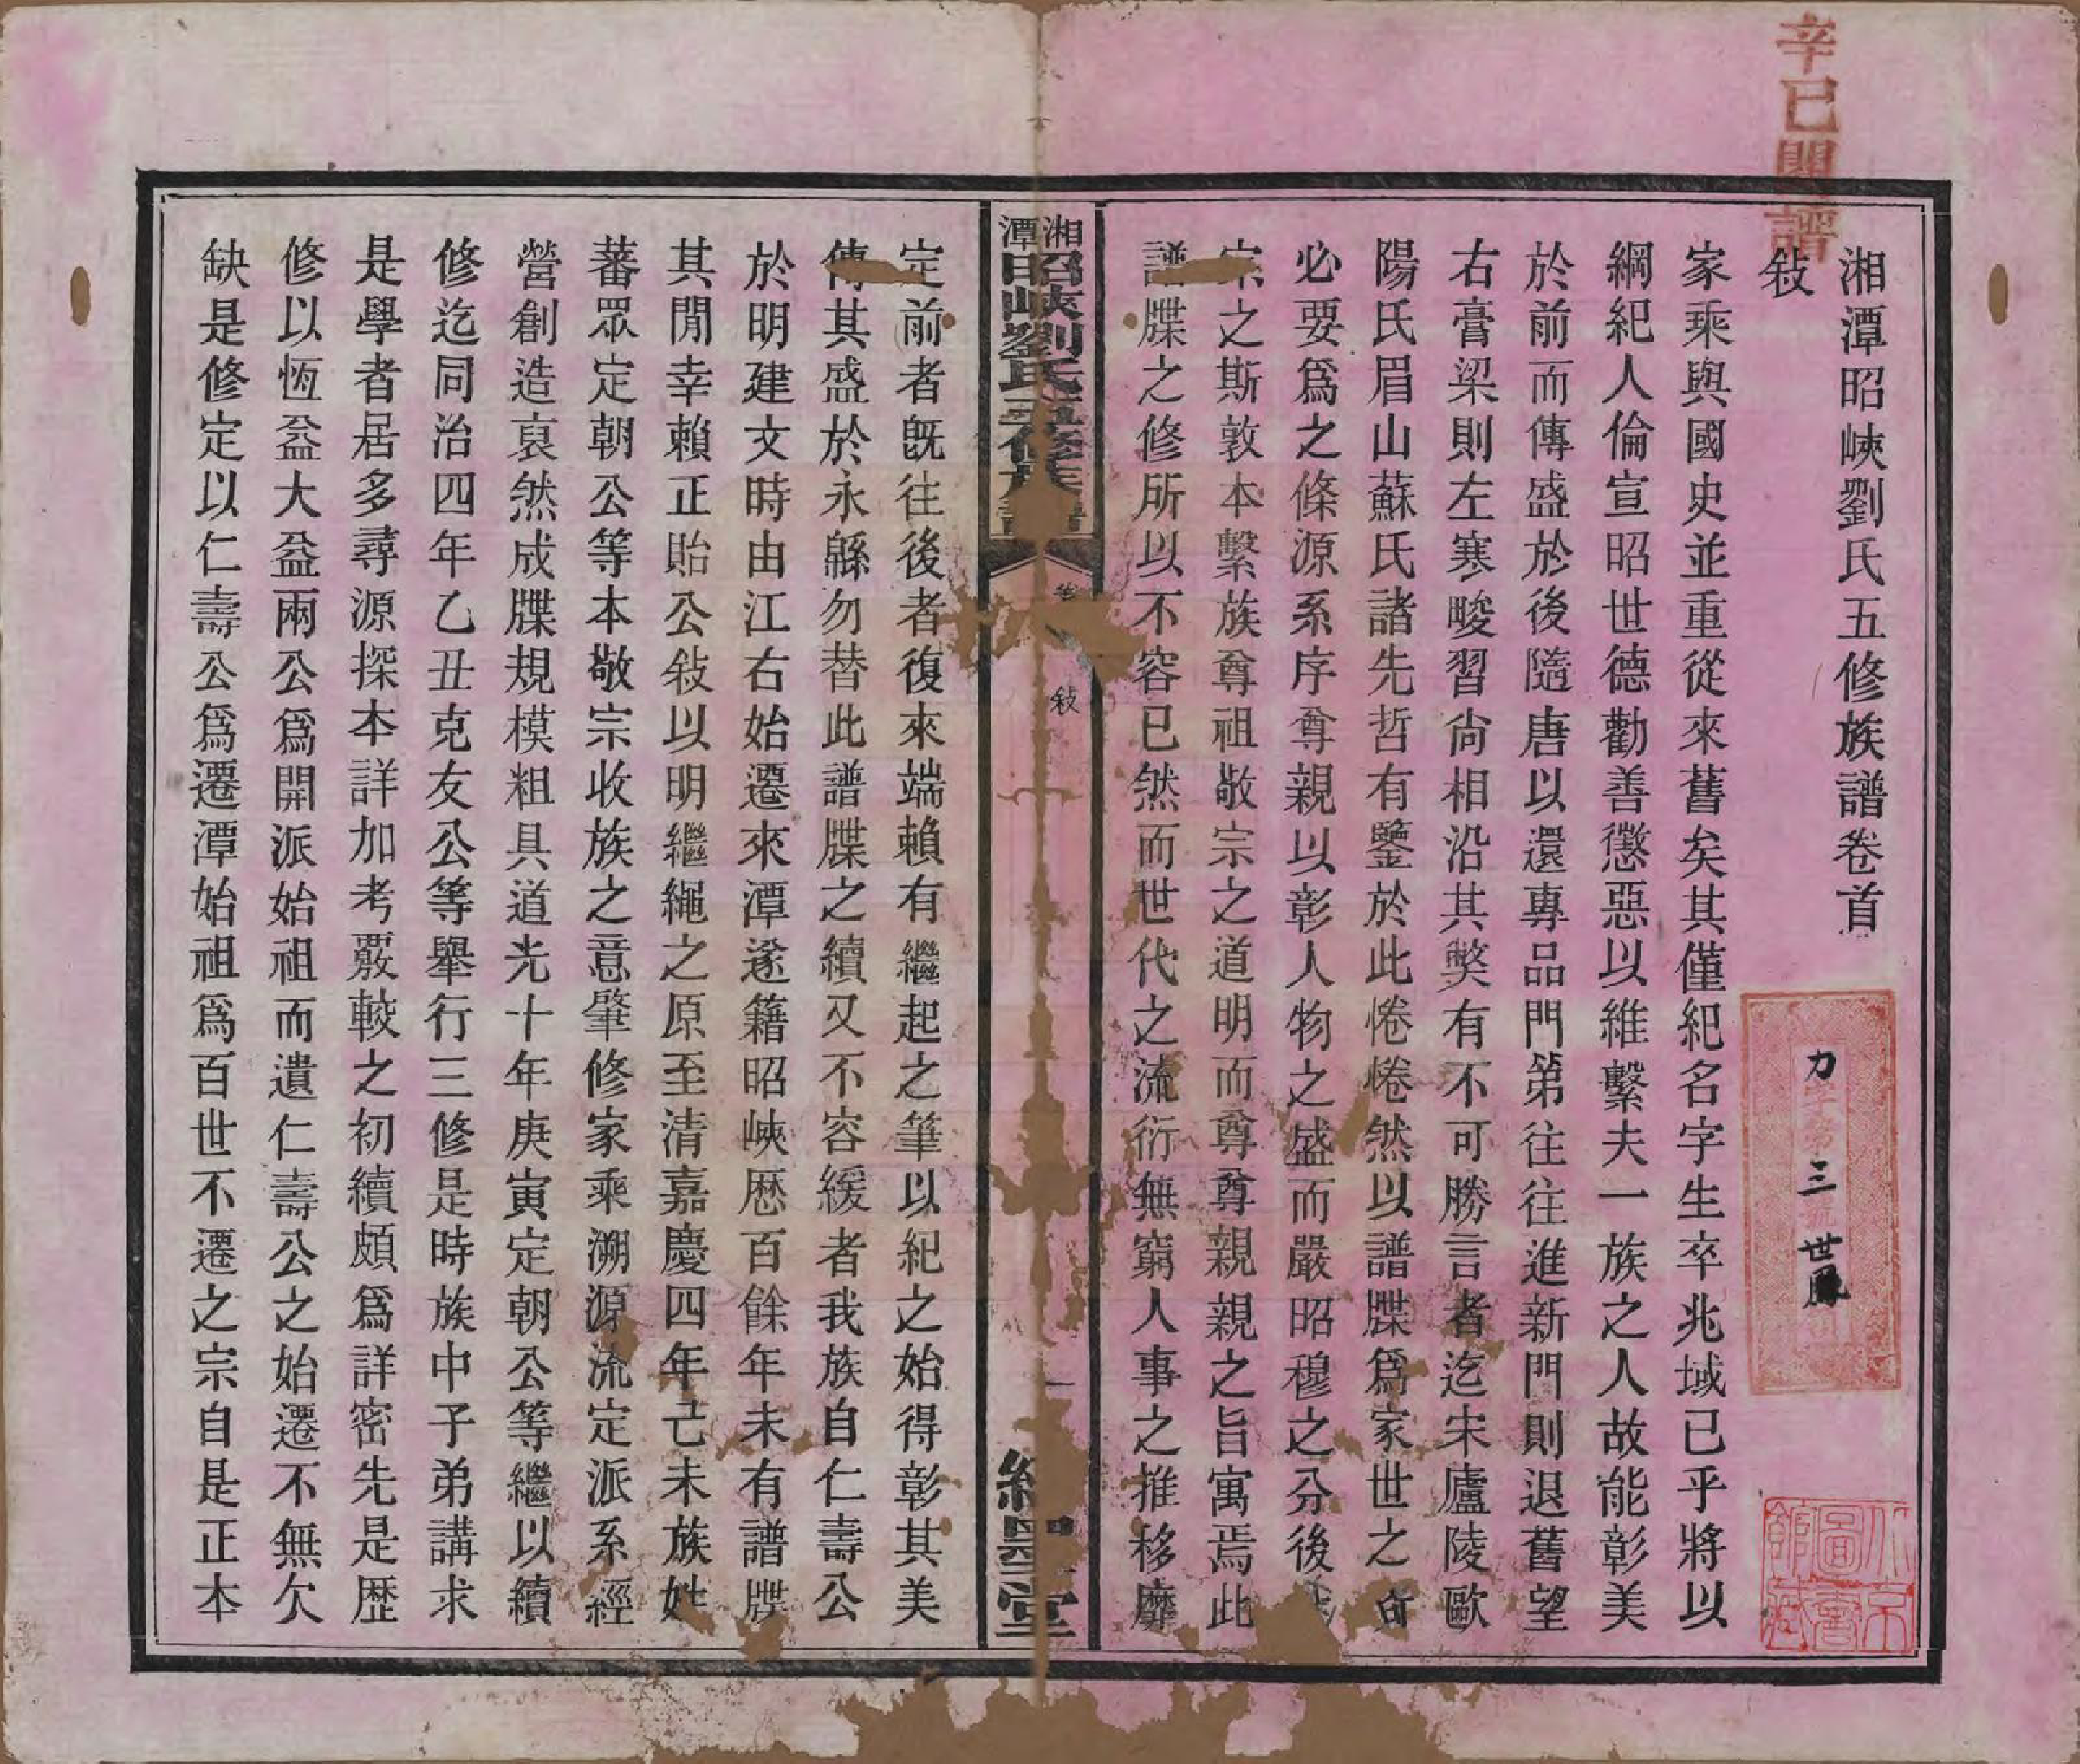 辛巳閱譜
湘潭昭峽劉氏五修族譜卷首
敍
家乘與國史並重從來舊矣其僅紀名字生卒兆域已乎將以
綱紀人倫宣昭世德勸善懲惡以維繫夫一族之人故能彰美
於前而傳盛於後隨唐以還專品門第往往進新門則退舊望
右膏梁則左寒畯習尙相沿其獘有不可勝言者迄宋廬陵歐
陽氏眉山蘇氏諸先哲有鑒於此惓惓然以譜牒爲家世之所
必要爲之條源系序尊親以彰人物之盛而嚴昭穆之分後
宗之斯敦本繫族尊祖敬宗之道明而尊尊親親之旨寓焉此
譜牒之修所以不容已然而世代之流衍無窮人事之推移靡
湘潭昭峽劉氏五修族譜
敍
一
定前者既往後者復來端賴有繼起之筆以紀之始得彰其美
傳其盛於永緜勿替此譜牒之續又不容緩者我族自仁壽公
於明建文時由江右始遷來潭遂籍昭峽歴百餘年未有譜牒
其閒幸賴正貽公敍以明繼繩之原至清嘉慶四年己未族姓
蕃眾定朝公等本敬宗收族之意肇修家乘溯源流定派系經
營創造裒然成牒規模粗具道光十年庚寅定朝公等繼以續
修迄同治四年乙丑克友公等舉行三修是時族中子弟講求
是學者居多尋源探本詳加考覈較之初續頗爲詳密先是歴
修以恆益大益兩公爲開派始祖而遺仁壽公之始遷不無欠
缺是修定以仁壽公爲遷潭始祖爲百世不遷之宗自是正本
力字弟三號世鳳
北京圖書館藏